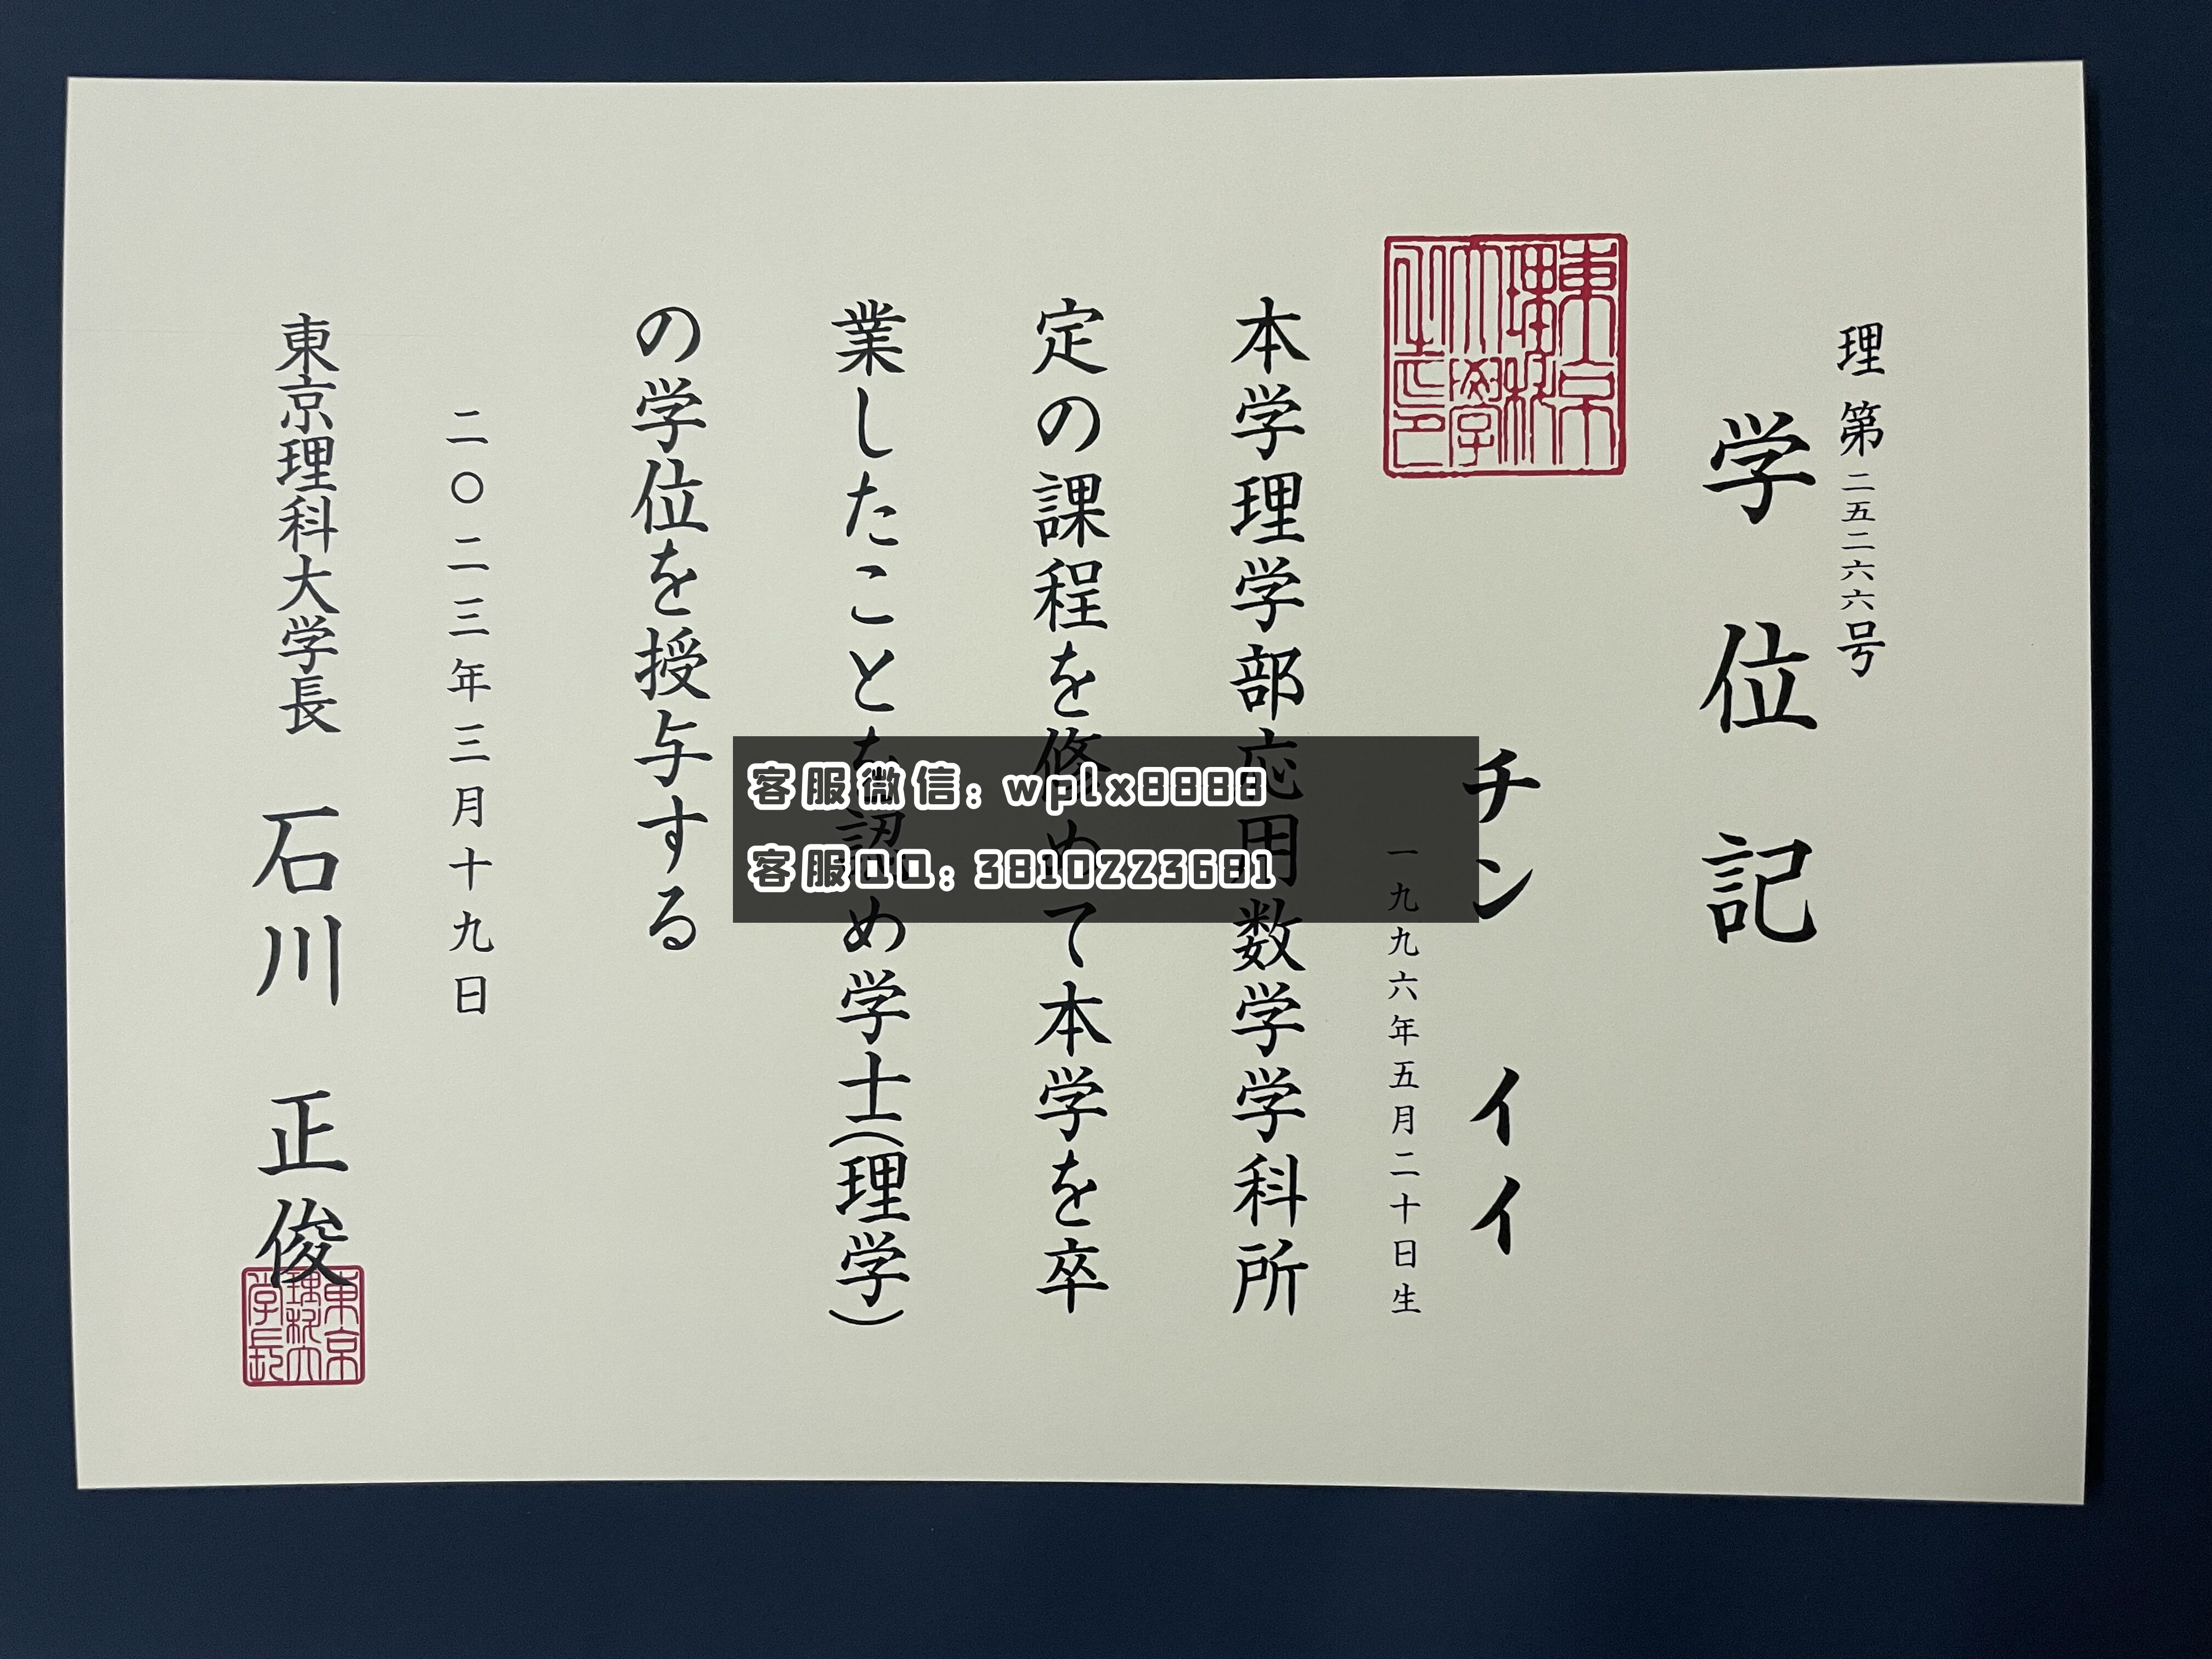 理第二五二六六号
学位記
チン イイ
一九九六年五月二十日生
本学理学部応用数学学科所
定の課程を修めて本学を卒
業したことを認め学士(理学)
の学位を授与する
二〇二三年三月十九日
東京理科大学長 石川 正俊
東京理科大学長
客服微信: wplx8888
客服QQ: 3810223681